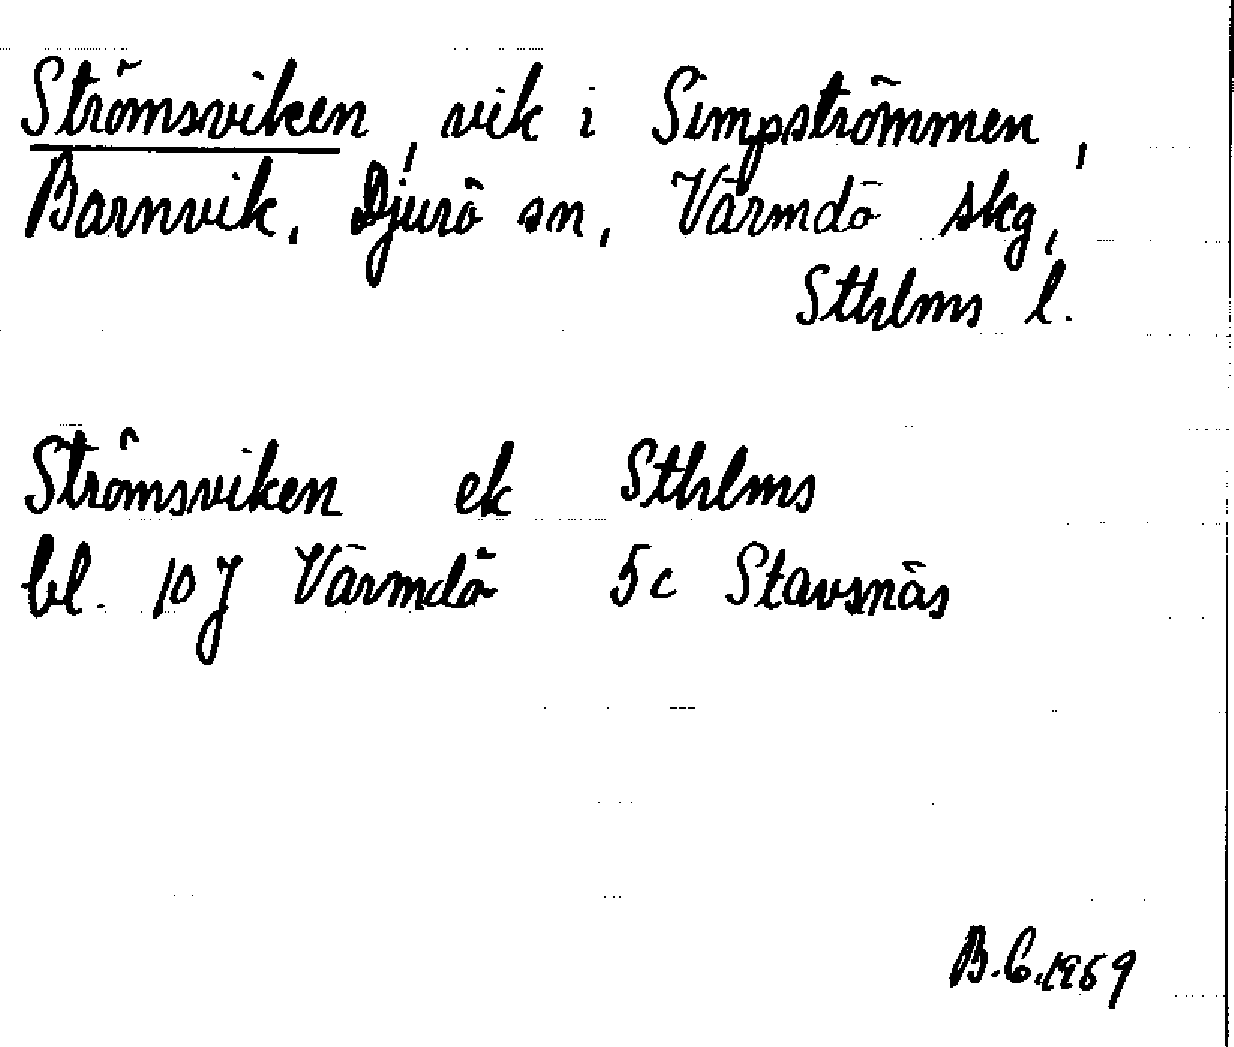 Strömsviken, vik i Simpströmmen,
Barnvik, Djurö sn, Värmdö skg,
Sthlms l.
Strömsviken ek Sthlms
bl. 10J Värmdö 5c Stavsnäs
B.C. 1969